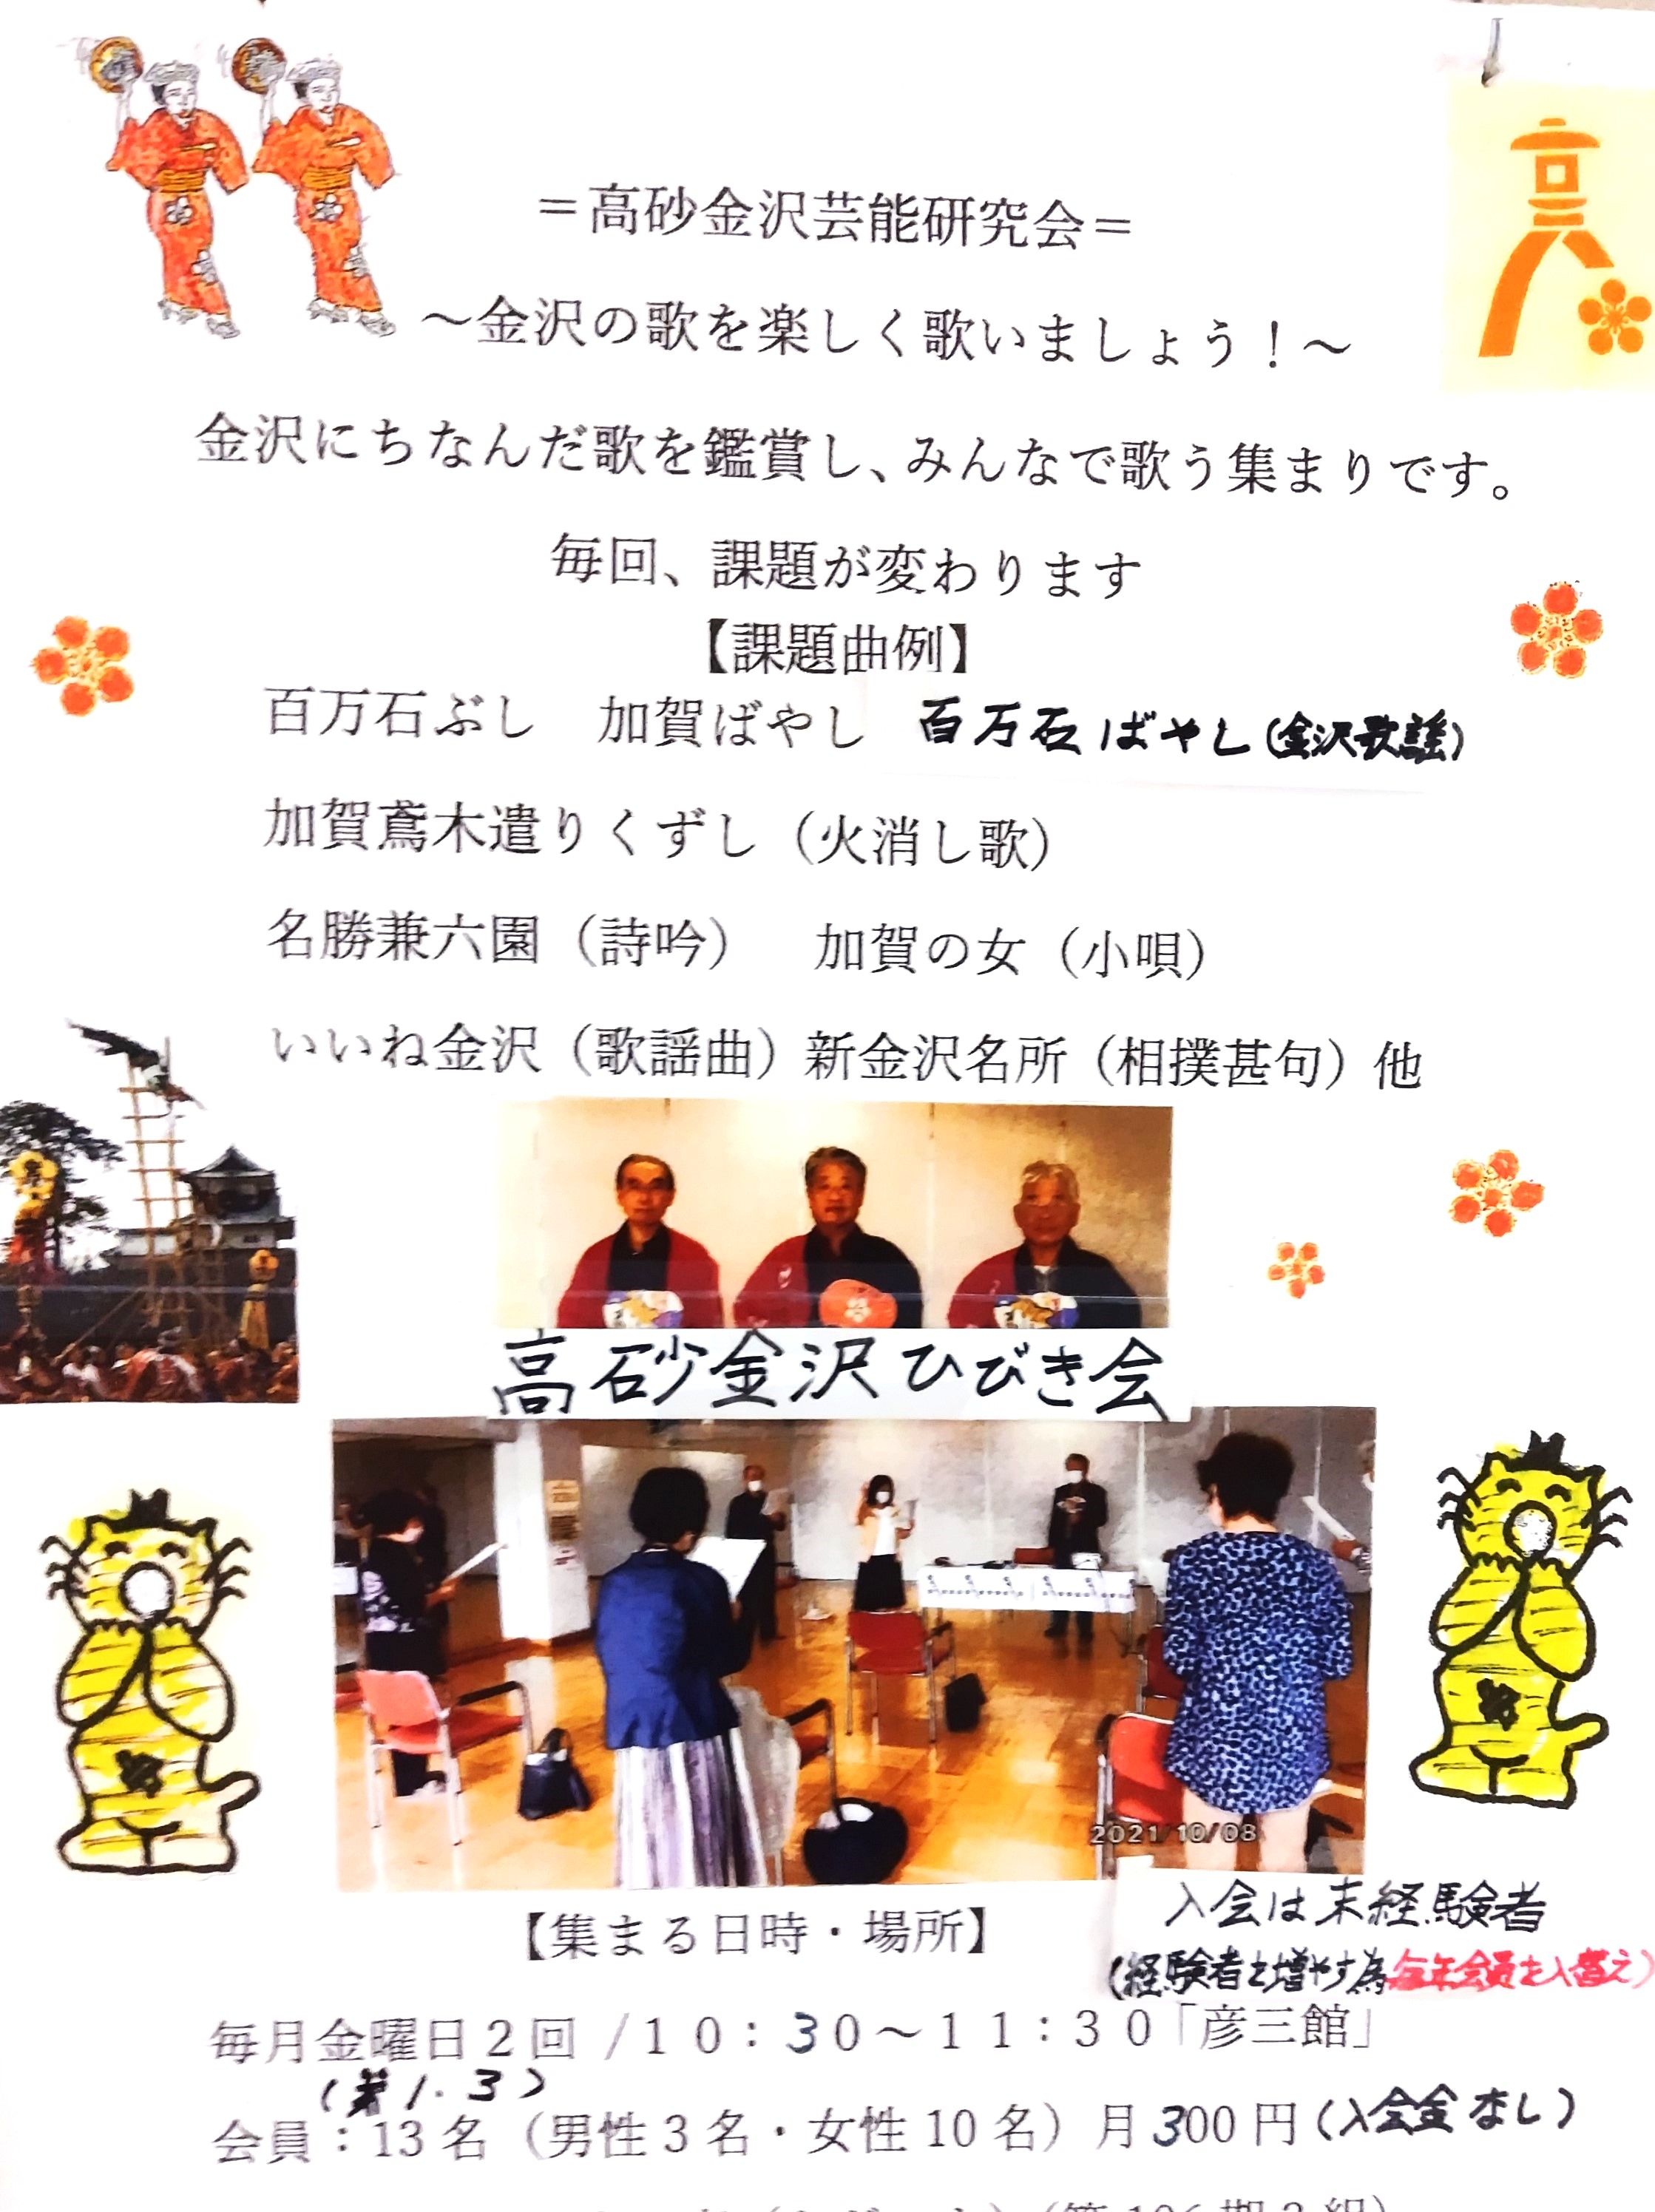 ＝高砂金沢芸能研究会＝
～金沢の歌を楽しく歌いましょう！～
金沢にちなんだ歌を鑑賞し、みんなで歌う集まりです。
毎回、課題が変わります
【課題曲例】
百万石ぶし　加賀ばやし　百万石ばやし(金沢歌謡)
加賀鳶木遣りくずし（火消し歌）
名勝兼六園（詩吟）　加賀の女（小唄）
いいね金沢（歌謡曲）新金沢名所（相撲甚句）他
高砂金沢ひびき会
2021/10/08
入会は未経験者
(経験者を増やす為毎年会員を入替え)
【集まる日時・場所】
毎月金曜日２回 /１０：３０～１１：３０「彦三館」
(第1.3)
会員：13名（男性3名・女性10名）月300円(入会金なし)